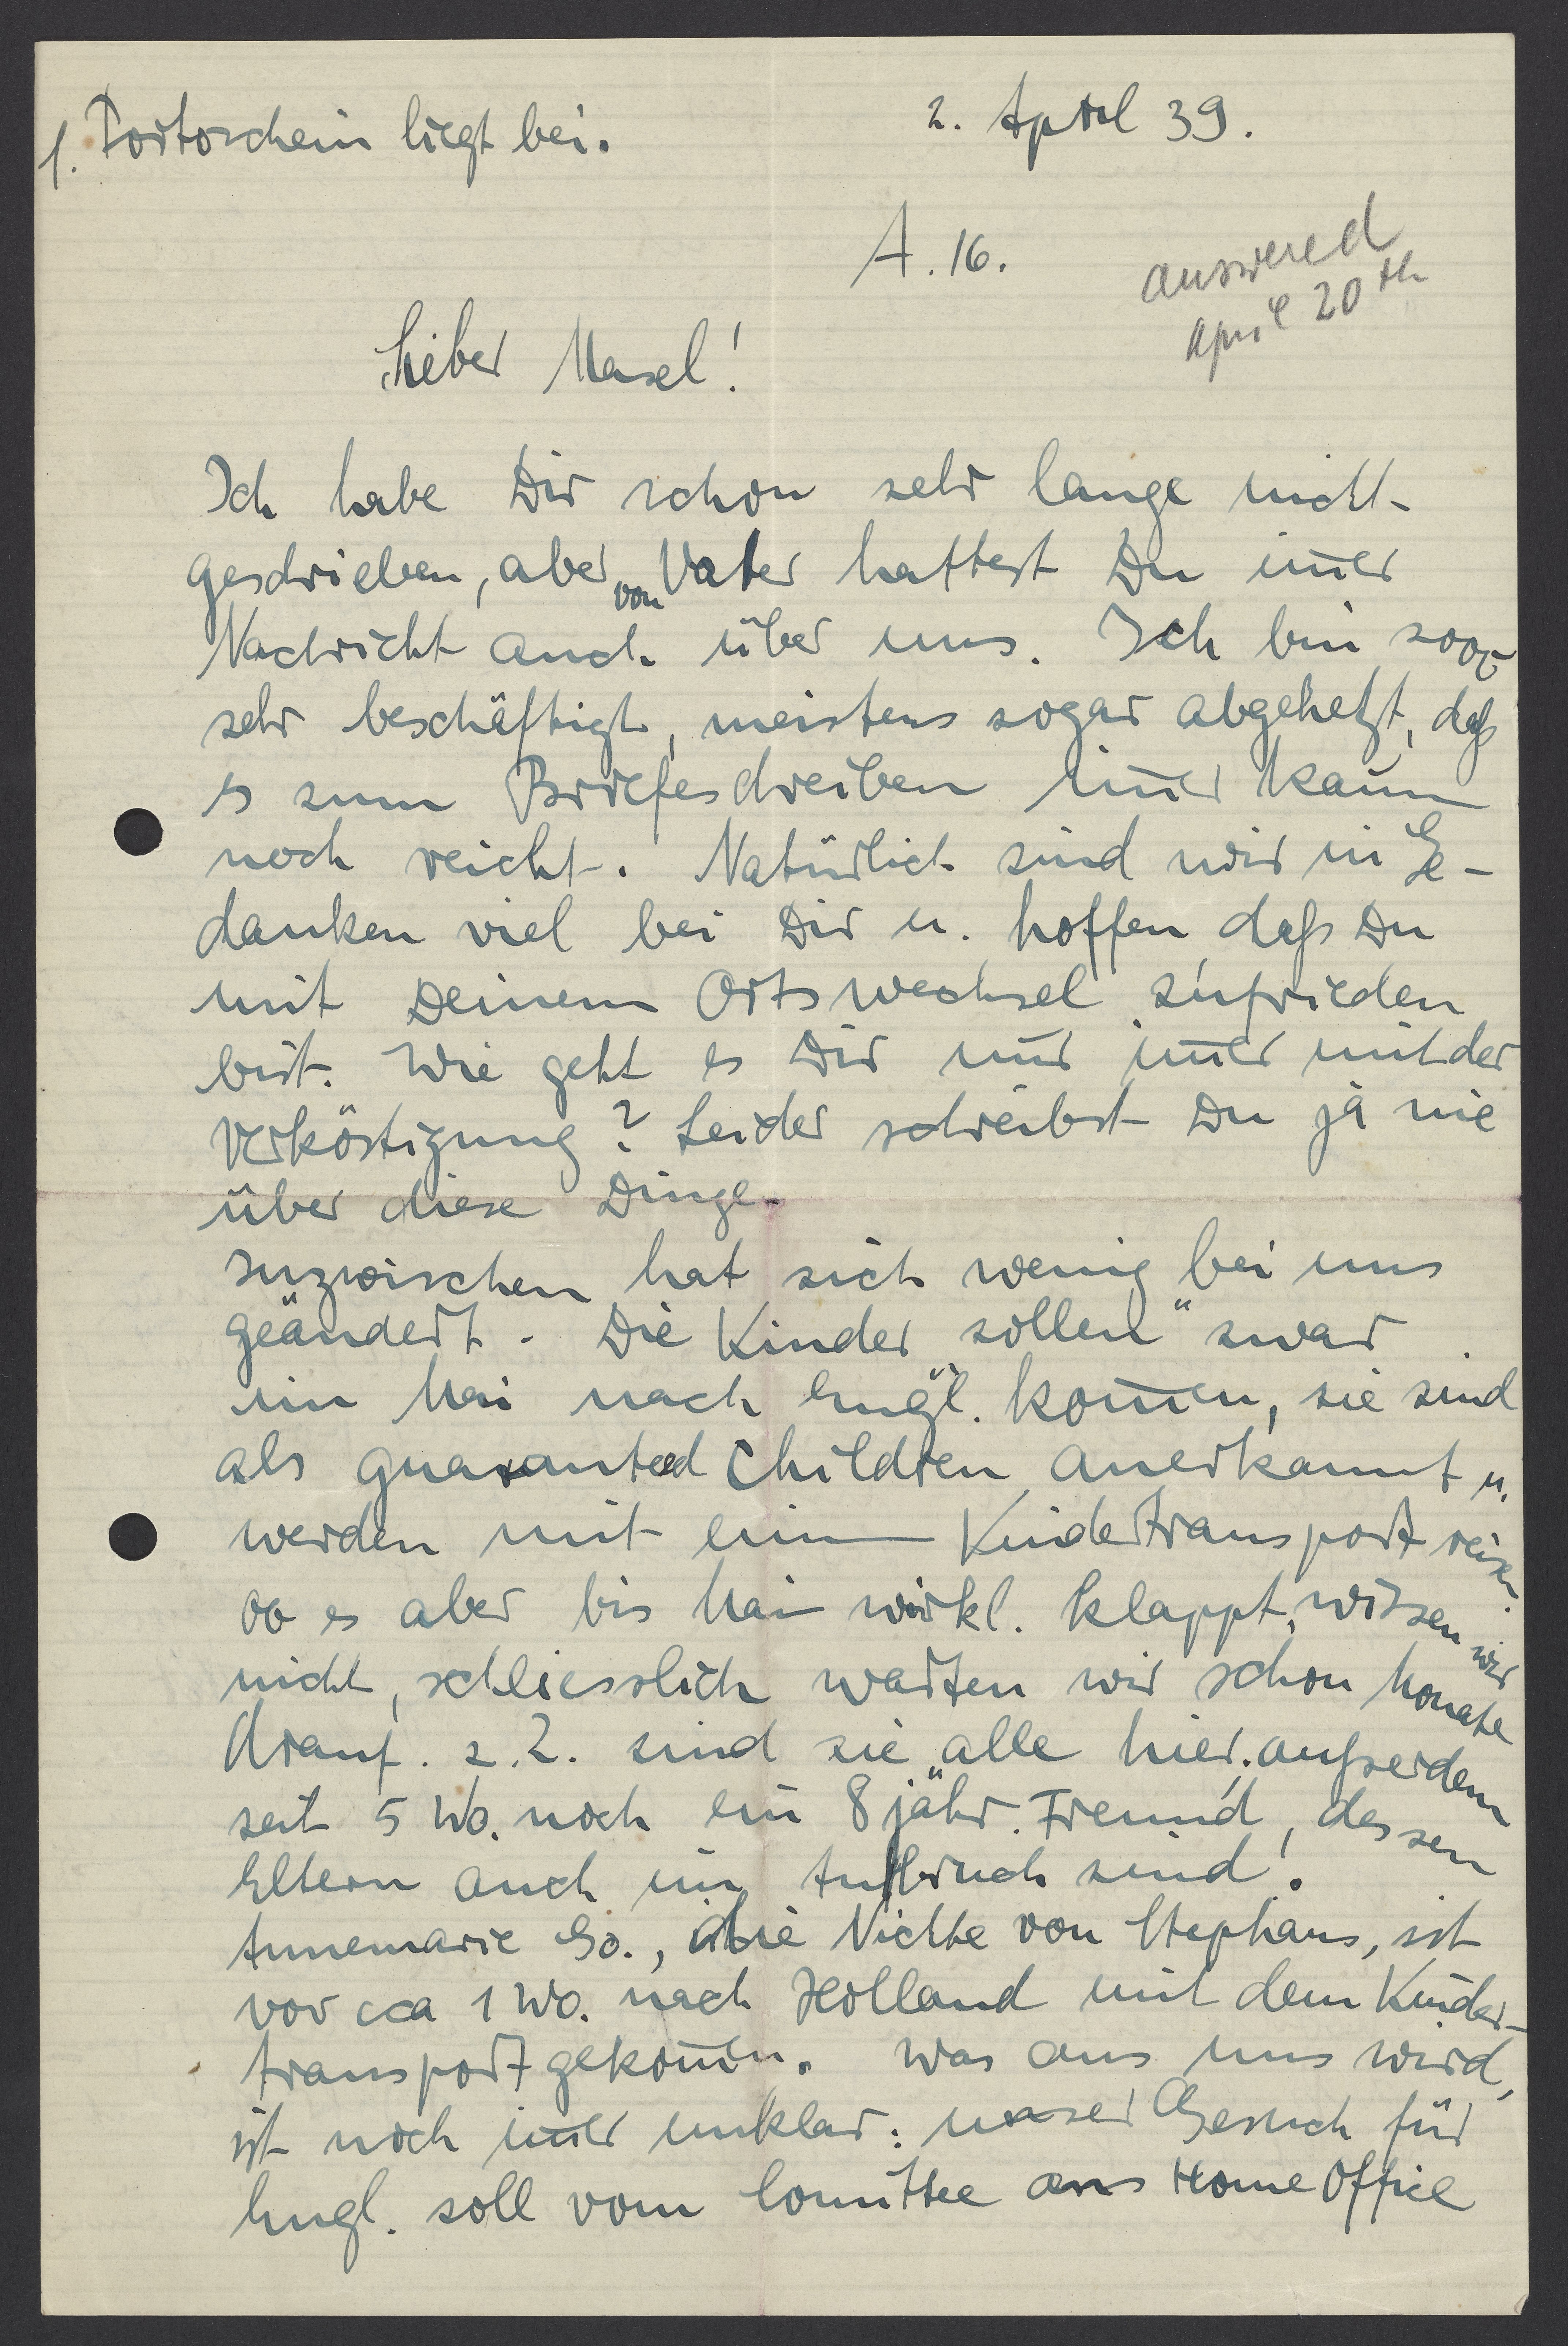 1. Portoschein liegt bei.
2. April 39.
A. 16.
answered
April 20th
Lieber Masel!
Ich habe Dir schon sehr lange nicht
geschrieben, aber von Vater hattest Du im̅er
Nachricht auch über uns. Ich bin
sehr beschäftigt, meistens sogar abgehetzt, daß
es zum Briefeschreiben im̅er kaum
noch reicht. Natürlich sind wir in Ge-
danken viel bei Dir u. hoffen, daß Du
mit Deinem Ortswechsel zufrieden
bist. Wie geht es Dir nur im̅er mit der
Verköstigung? Leider schreibst Du ja nie
über diese Dinge.
Inzwischen hat sich wenig bei uns
geändert. Die Kinder "sollen" zwar
im Mai nach Engl. kom̅en, sie sind
als guaranteed Children anerkannt u.
werden mit einem Kindertransport reisen.
ob es aber bis Mai wirkl. klappt, wissen wir
nicht, schliesslich warten wir schon Monate
drauf. z. Z. sind sie alle hier, außerdem
seit 5 Wo. noch ein 8 jähr. Freund, dessen
Eltern auch im Aufbruch sind!
Annemarie Go., die Nichte von Stephans, ist
vor cca 1 Wo. nach Holland mit dem Kinder-
transport gekom̅en. Was aus uns wird,
ist noch im̅er unklar. unser Gesuch für
Engl. soll vom Comittee ans Home Office